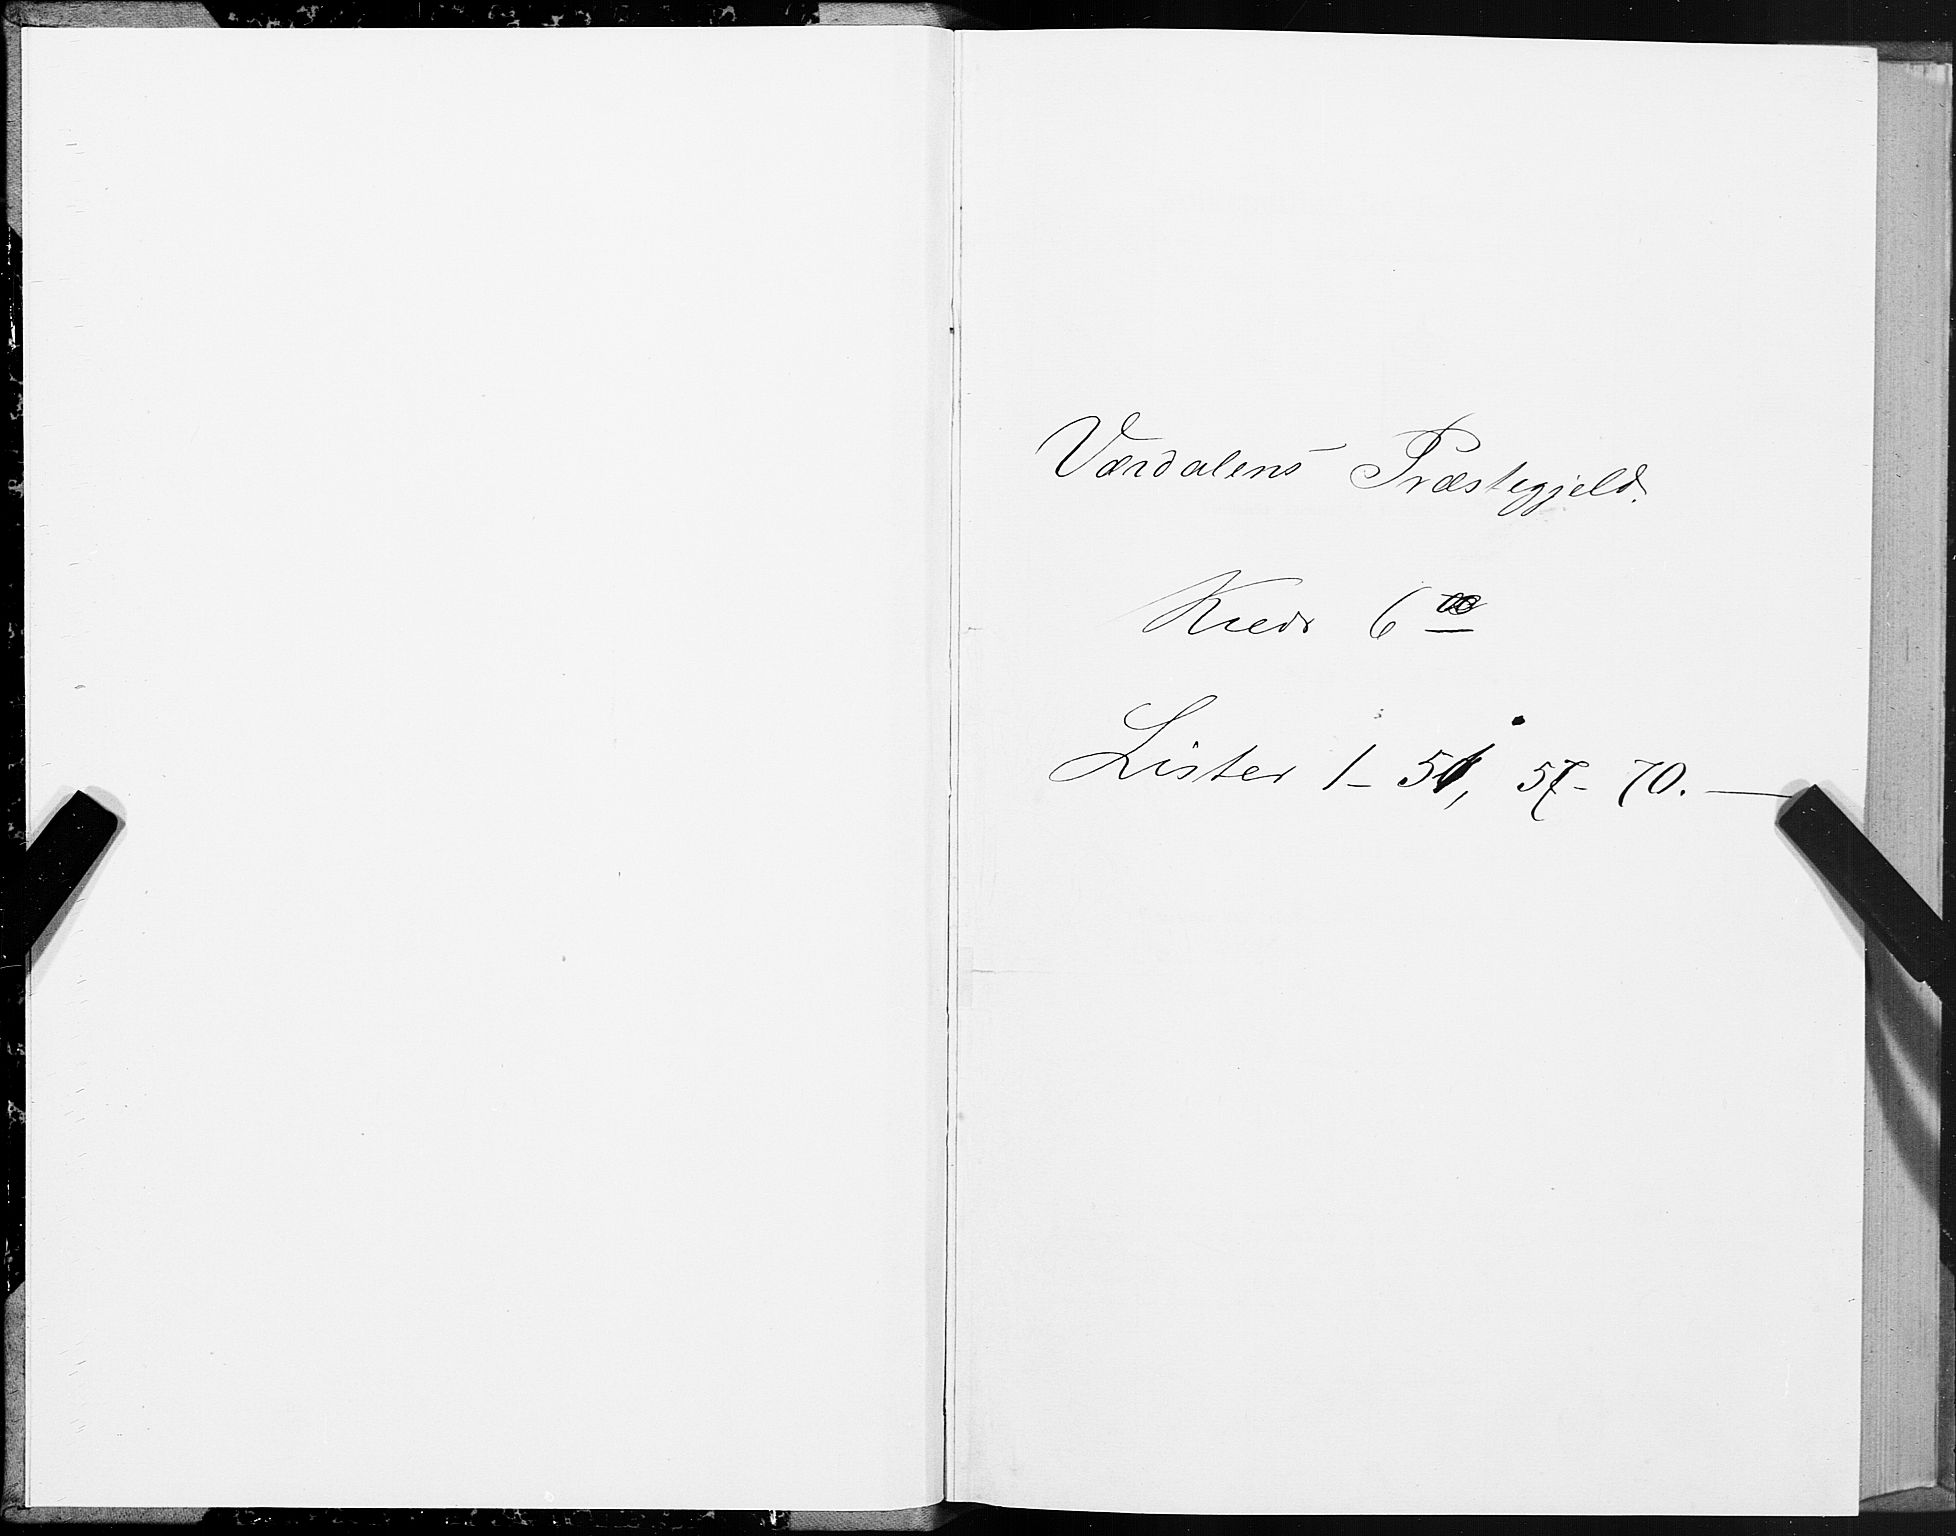 Værdalens Præstegjeld.
Kreds 6
Lister 1 - 51, 57 - 70. —